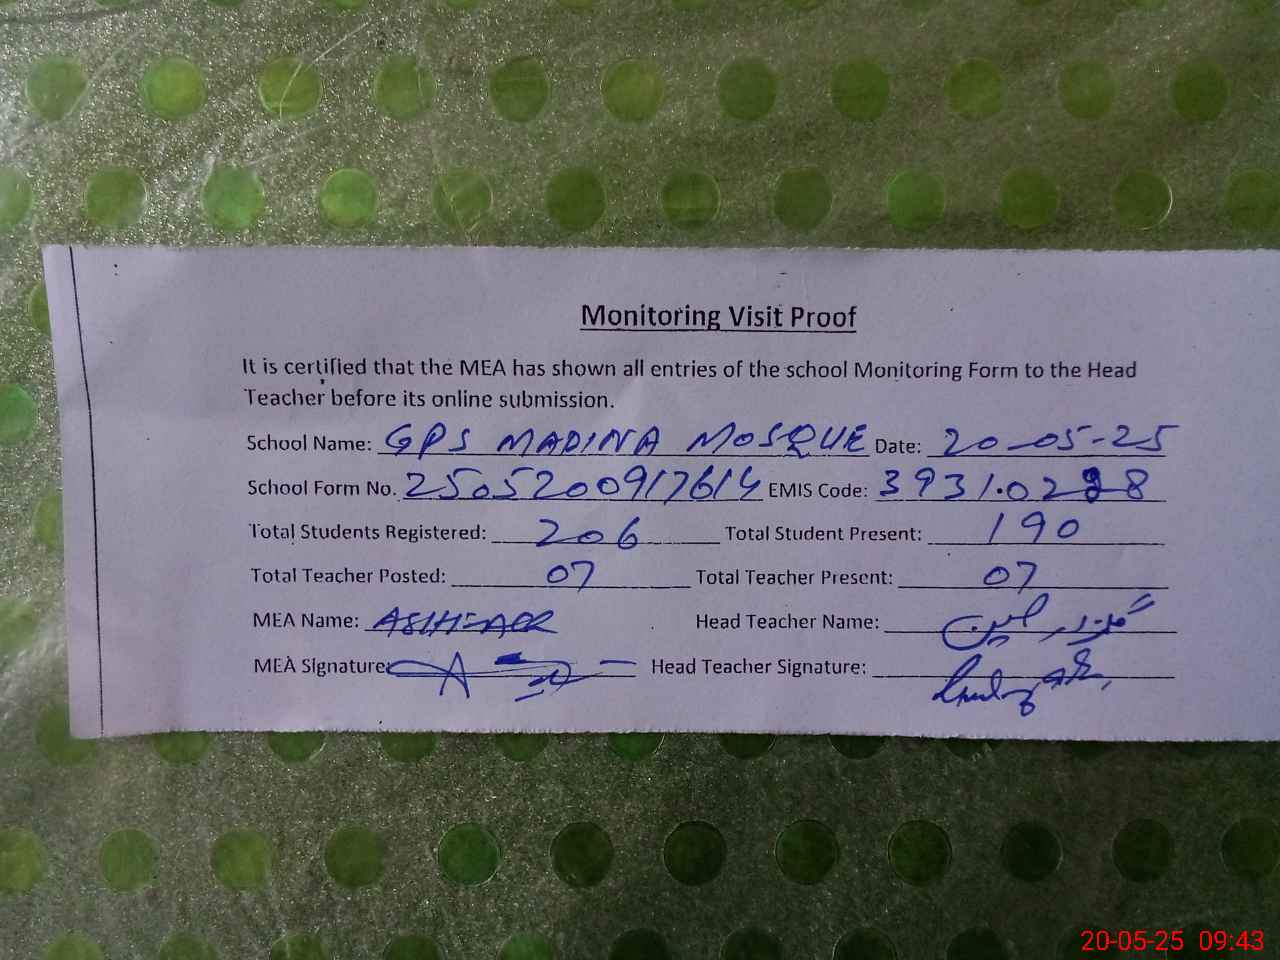 Monitoring Visit Proof
It is certified that the MEA has shown all entries of the school Monitoring Form to the Head
Teacher before its online submission.
School Name: GPS MADINA MOSQUE Date: 20-05-25
School Form No. 2505200917614 EMIS Code:
Total Students Registered: 206 Total Student Present: 190
Total Teacher Posted: 07 Total Teacher Present: 07
MEA Name: Head Teacher Name:
MEA Signature: Head Teacher Signature:
20-05-25 09:43